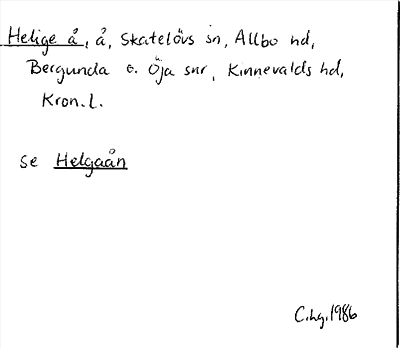 Helige å, å, Skatelövs sn, Allbo hd,
Bergunda o. Öja snr, Kinnevalds hd,
Kron. L.
se Helgaån
C.hg. 1986